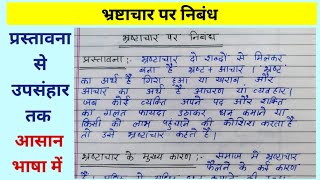 भ्रष्टाचार पर निबंध
प्रस्तावना
से
उपसंहार
तक
आसान
भाषा में
भ्रष्टाचार पर निबंध
प्रस्तावना:- भ्रष्टाचार दो शब्दों से मिलकर
बना है भ्रष्ट + आचार । भ्रष्ट
का अर्थ है गिरा हुआ या खराब और
आचार का अर्थ है आचरण या व्यवहार।
जब कोई व्यक्ति अपने पद और शक्ति
का गलत फायदा उठाकर धन कमाने या
किसी को लाभ पहुंचाने की कोशिश करता है
तो उसे भ्रष्टाचार कहते हैं।
भ्रष्टाचार के मुख्य कारण:- समाज में भ्रष्टाचार
फैलने के कई कारण